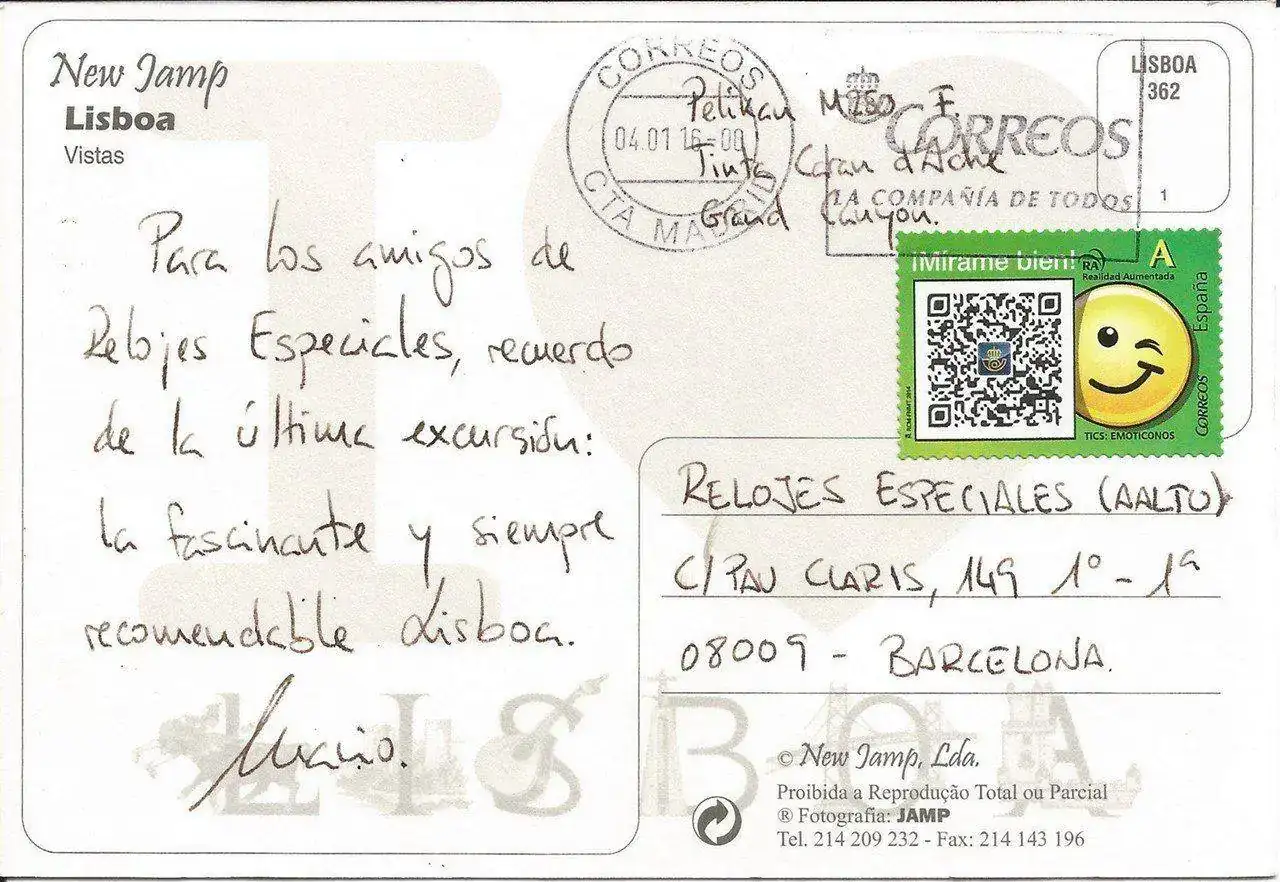 New Jamp
Lisboa
Vistas
CORREOS
04.01 16-00
CTA MADRID
Pelikan M250 F
Tinta Caran d'Ache
Grand Canyon.
CORREOS
LA COMPAÑÍA DE TODOS
LISBOA
362
1
¡Mírame bien!
RA
Realidad Aumentada
A
España
CORREOS
TICS: EMOTICONOS
Para los amigos de
Relojes Especiales, recuerdo
de la última excursión:
la fascinante y siempre
recomendable Lisboa.
RELOJES ESPECIALES (AALTO)
C/ PAU CLARIS, 149 1º - 1ª
08009 - BARCELONA.
LISBOA
© New Jamp, Lda.
Proibida a Reprodução Total ou Parcial
® Fotografia: JAMP
Tel. 214 209 232 - Fax: 214 143 196